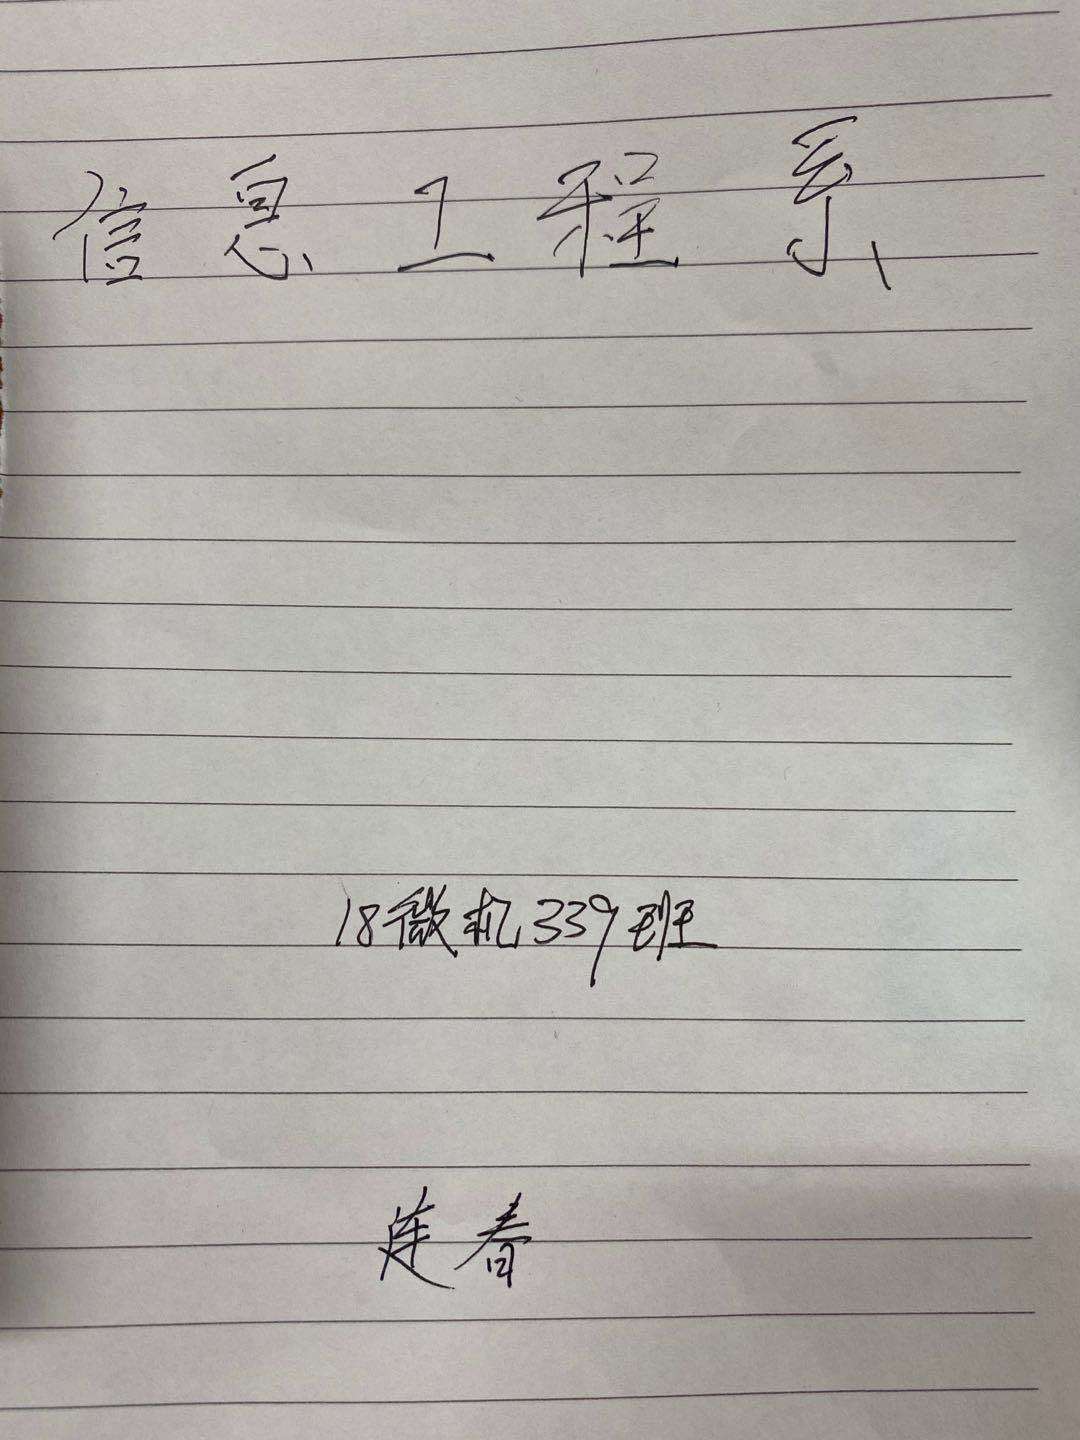 信息工程系
18微机339班
连春